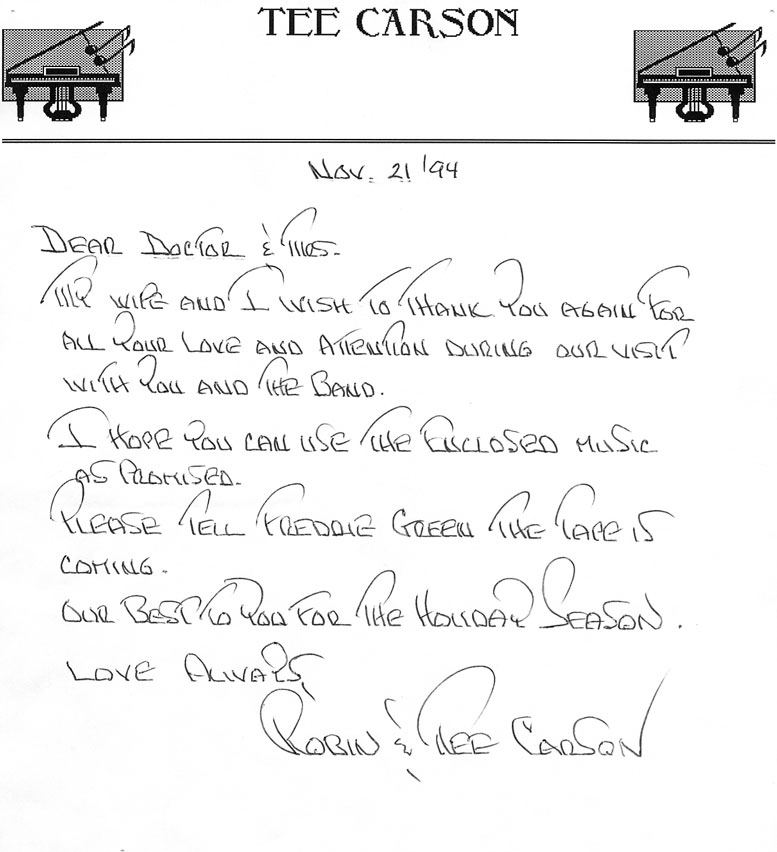 TEE CARSON
Nov. 21 '94
DEAR DOCTOR & MRS.
MY WIFE AND I WISH TO THANK YOU AGAIN FOR
ALL YOUR LOVE AND ATTENTION DURING OUR VISIT
WITH YOU AND THE BAND.
I HOPE YOU CAN USE THE ENCLOSED MUSIC
AS PROMISED.
PLEASE TELL FREDDIE GREEN THE TAPE IS
COMING.
OUR BEST TO YOU FOR THE HOLIDAY SEASON.
LOVE ALWAYS,
ROBIN & TEE CARSON